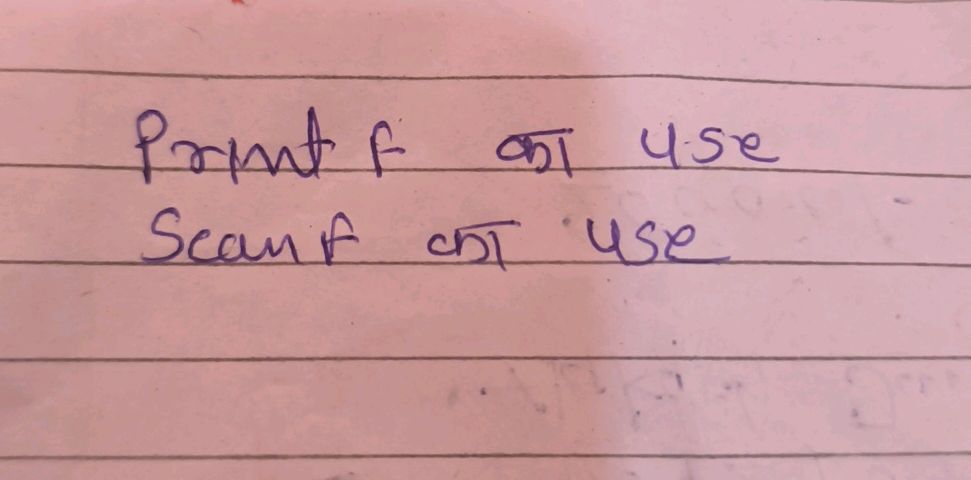 Printf का use
Scanf का use